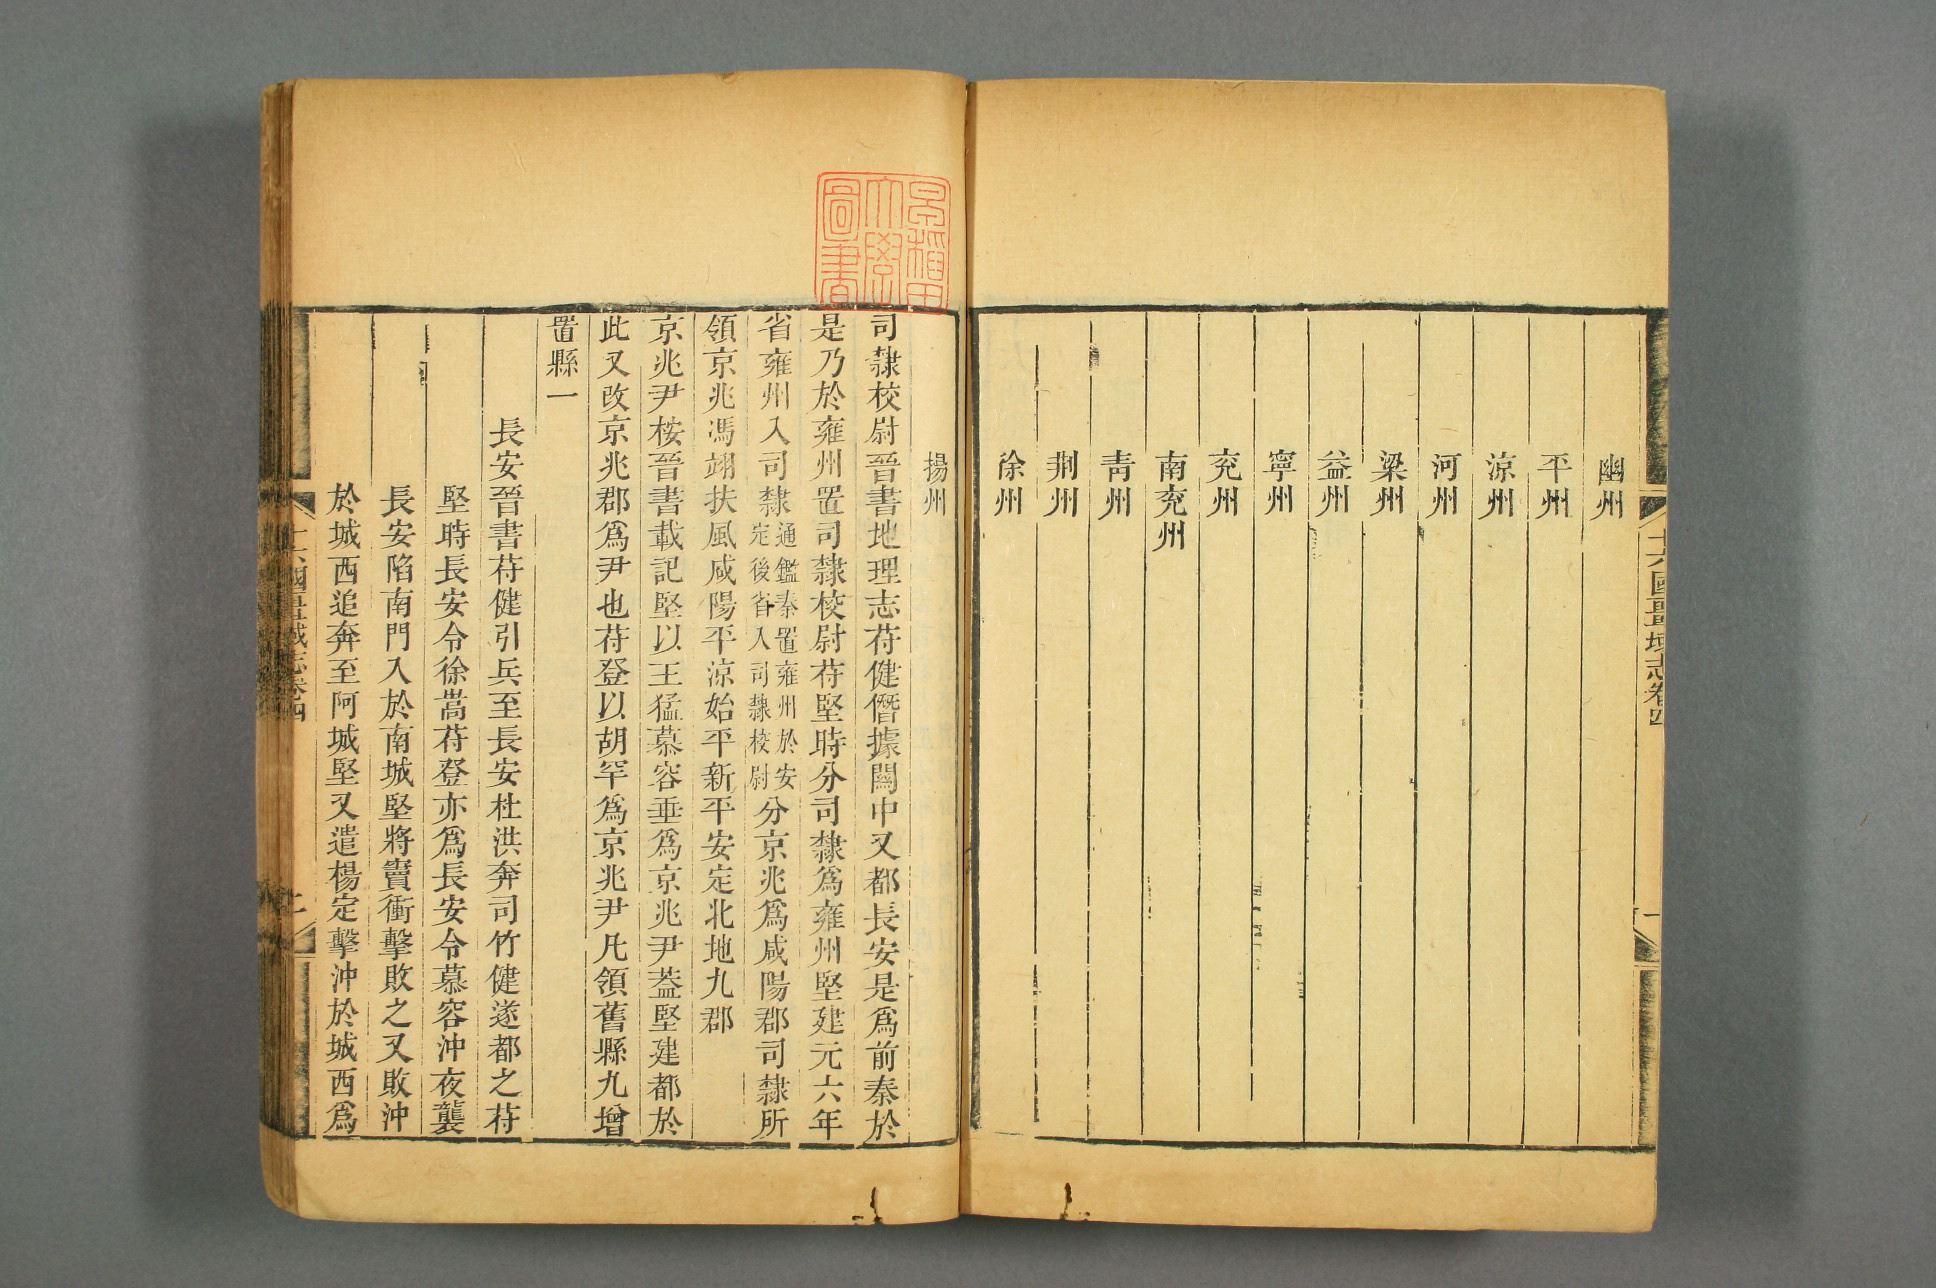 十六國疆域志卷四
一
幽州
平州
涼州
河州
梁州
益州
寧州
兗州
南兗州
青州
荆州
徐州
早稻田
大學
圖書
揚州
司隸校尉晉書地理志苻健僭據關中又都長安是爲前秦於
是乃於雍州置司隸校尉苻堅時分司隸爲雍州堅建元六年
省雍州入司隸通鑑秦置雍州於安定後省入司隸校尉分京兆爲咸陽郡司隸所
領京兆馮翊扶風咸陽平涼始平新平安定北地九郡
京兆尹桉晉書載記堅以王猛慕容垂爲京兆尹葢堅建都於
此又改京兆郡爲尹也苻登以胡罕爲京兆尹凡領舊縣九增
置縣一
長安晉書苻健引兵至長安杜洪奔司竹健遂都之苻
堅時長安令徐嵩苻登亦爲長安令慕容沖夜襲
長安陷南門入於南城堅將竇衝擊敗之又敗沖
於城西追奔至阿城堅又遣楊定擊沖於城西爲
十六國疆域志卷四
二